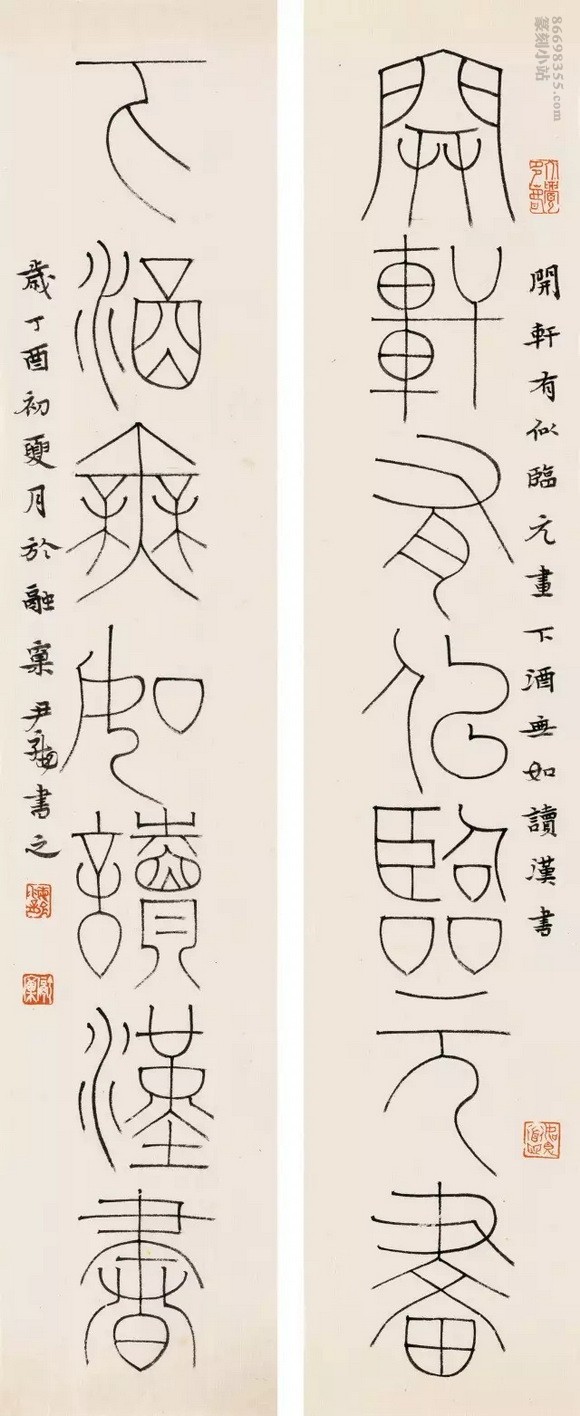 開軒有似臨元畫
開軒有似臨元畫下酒無如讀漢書
下酒無如讀漢書
歲丁酉初夏月於融窠尹海龍書之
86698355.com
篆刻小站